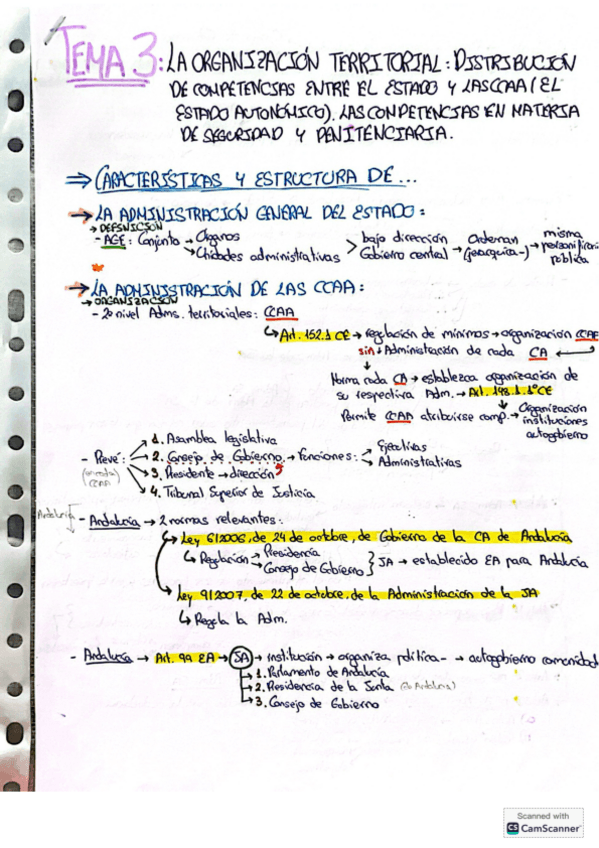 TEMA 3: LA ORGANIZACIÓN TERRITORIAL: DISTRIBUCIÓN
DE COMPETENCIAS ENTRE EL ESTADO Y LAS CCAA (EL
ESTADO AUTONÓMICO). LAS COMPETENCIAS EN MATERIA
DE SEGURIDAD Y PENITENCIARIA.
⇒ CARACTERÍSTICAS Y ESTRUCTURA DE...
→ LA ADMINISTRACIÓN GENERAL DEL ESTADO:
→ DEFINICIÓN
- AGE: Conjunto → Órganos
→ Unidades administrativas > bajo dirección Gobierno central > Ordenan (jerarquía-) → misma personificación pública
→ LA ADMINISTRACIÓN DE LAS CCAA:
→ ORGANIZACIÓN
- 2º nivel Adms. territoriales: CCAA
↳ Art. 152.1 CE → regulación de mínimos → organización CCAA
sin ↓ Administración de cada CA ←
Norma cada CA → establezca organización de
su respectiva Adm. → Art. 148.1.1º CE
Permite CCAA atribuirse comp. → Organización instituciones autogobierno
- Prevé:
→ 1. Asamblea legislativa
→ 2. Consejo de Gobierno → funciones: → Ejecutivas
→ Administrativas
→ 3. Presidente → dirección
→ 4. Tribunal Superior de Justicia.
CCAA
Andalucía
- Andalucía → 2 normas relevantes:
↳ Ley 6/2006, de 24 de octubre, de Gobierno de la CA de Andalucía
↳ Regulación → Presidencia
→ Consejo de Gobierno } JA → establecido EA para Andalucía
↳ Ley 9/2007, de 22 de octubre, de la Administración de la JA
↳ Regula la Adm.
- Andalucía → Art. 99 EA → JA → institución → organiza política- → autogobierno comunidad
→ 1. Parlamento de Andalucía
→ 2. Presidencia de la Junta (de Andalucía)
→ 3. Consejo de Gobierno
Scanned with
CS CamScanner